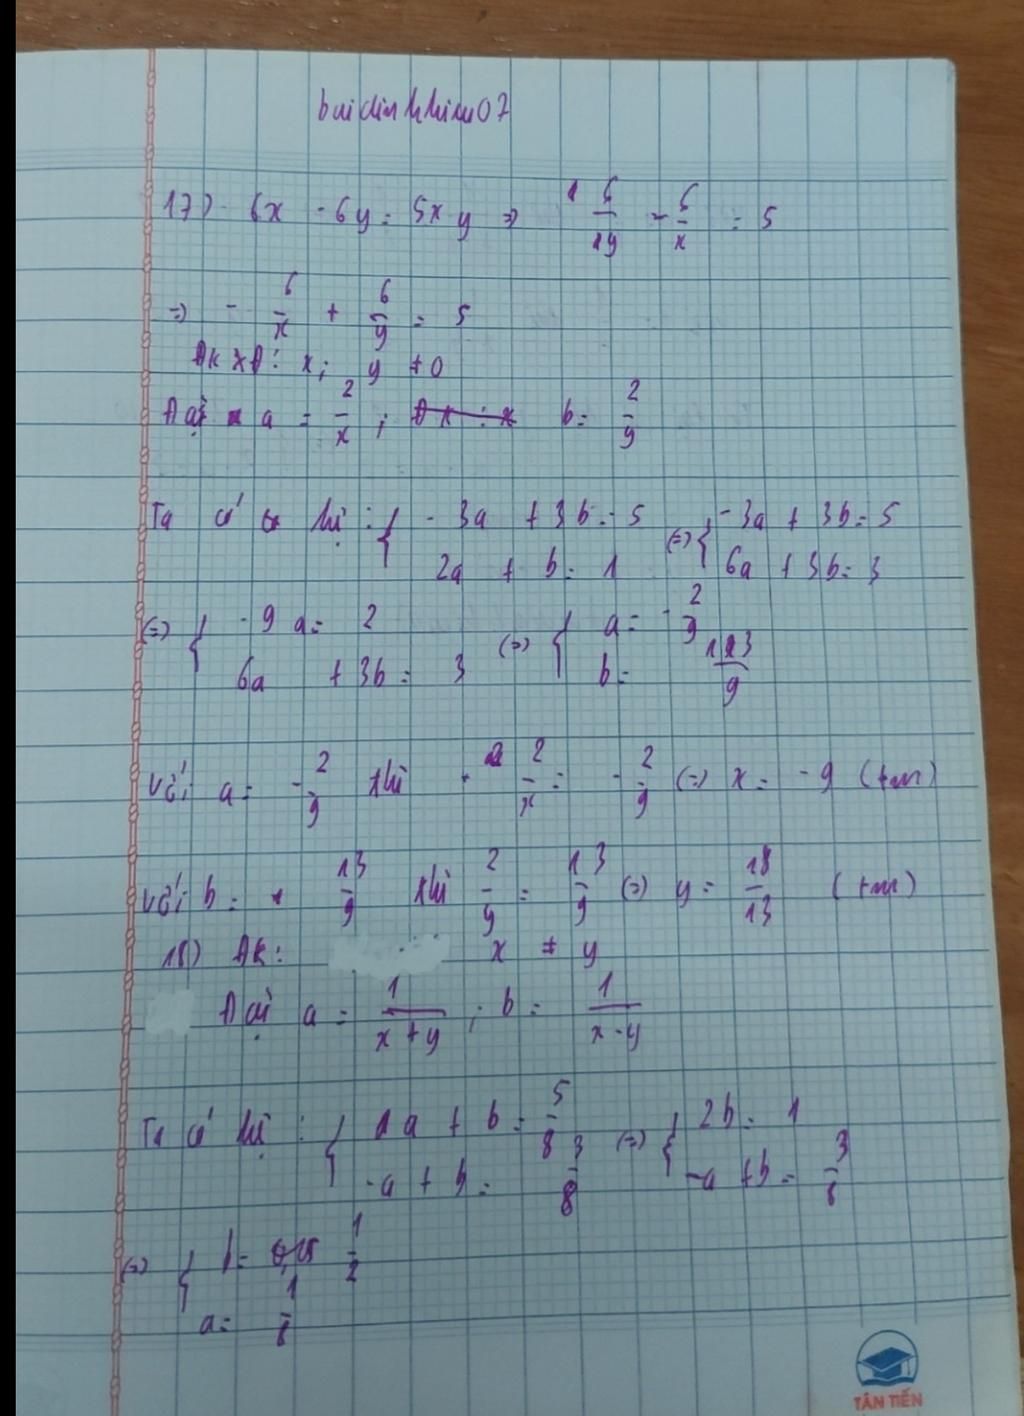 buidinhhieu07
17) - 6x - 6y = 5xy => 6/1y - 6/x = 5
=> - 6/x + 6/y = 5
ĐKXĐ: x; y ≠ 0
Đặt a = 2/x ; b = 2/y
Ta có hệ : { - 3a + 3b = 5 (=) { - 3a + 3b = 5
2a + b = 1 6a + 3b = 3
(=) { - 9a = 2 (=) { a = - 2/9
6a + 3b = 3 b = 13/9
Với a = - 2/9 thì 2/x = - 2/9 (=) x = - 9 (tm)
Với b = 13/9 thì 2/y = 13/9 (=) y = 18/13 (tm)
18) ĐK: x ≠ y
Đặt a = 1/(x + y) ; b = 1/(x - y)
Ta có hệ : { 1a + b = 5/8 (=) { 2b = 1
- a + b = 3/8 - a + b = 3/8
(=) { b = 1/2
a = 1/8
TÂN TIẾN